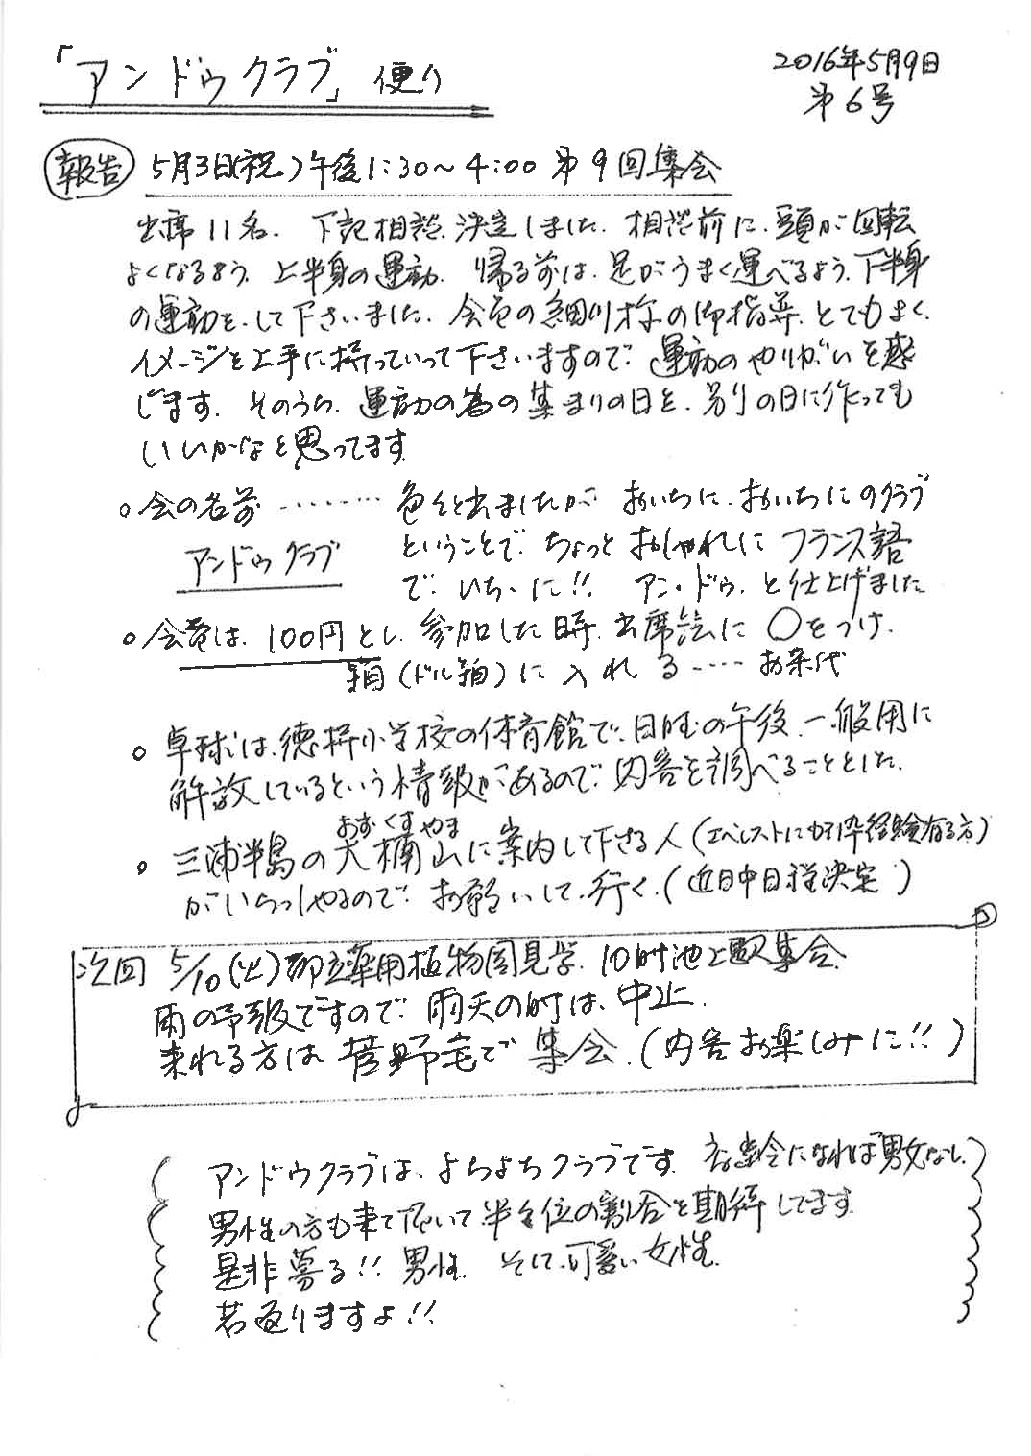 「アンドゥクラブ」便り
2016年5月9日
第6号
報告 5月3日(祝)午後1:30〜4:00 第9回集会
出席11名. 下記相談、決定しました. 相談前に、頭が回転
よくなるよう、上半身の運動. 帰る前は、足がうまく運べるよう、下半身
の運動を、して下さいました. 会員の細川様の御指導、とてもよく、
イメージを上手に持っていって下さいますので、運動のやりがいを感
じます. そのうち、運動の為の集まりの日を、別の日に作っても
いいかなと思ってます
○会の名前 ……… 色々と出ましたが おいちに、おいちにのクラブ
アンドゥクラブ
ということで、ちょっとおしゃれに フランス語
で、いち、に!! アン・ドゥ、と仕上げました
○会費は、100円とし、参加した時、出席簿に○をつけ、
箱(ドル箱)に入れる…… お茶代
○卓球は、徳持小学校の体育館で、日曜の午後、一般用に
解放しているという情報があるので、内容を調べることとした.
おおくすやま
○三浦半島の大楠山に案内して下さる人(エベレストにも 経験有る方)
がいらっしゃるので、お願いして、行く.(近日中日程決定)
次回 5/10(火)都立薬用植物園見学. 10時池上駅集合.
雨の予報ですので、雨天の時は、中止.
来れる方は菅野宅で集会.(内容お楽しみに!!)
アンドウクラブは、よちよちクラブです. 高齢になれば男女なし、
男性の方も来て頂いて半々位の割合を期待してます.
是非募る!! 男性. そして、可愛い女性.
若返りますよ!!